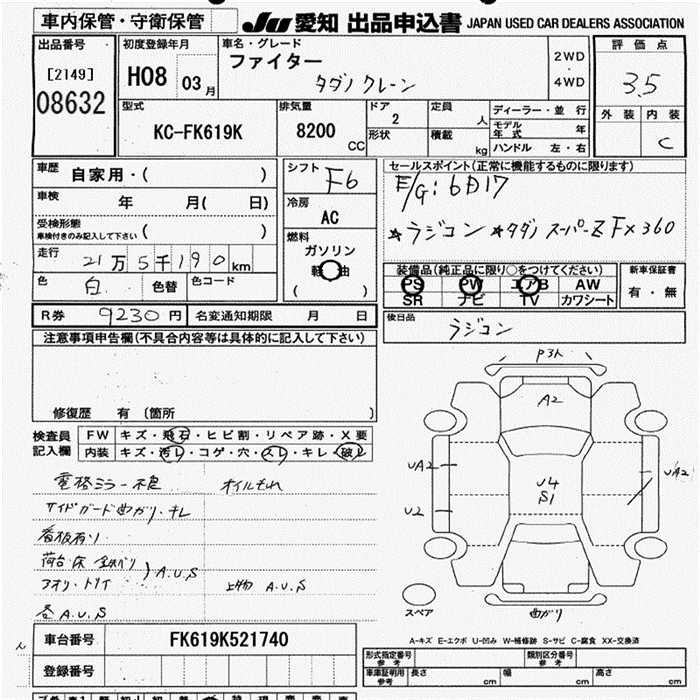 車内保管・守衛保管
JU 愛知 出品申込書 JAPAN USED CAR DEALERS ASSOCIATION
出品番号
[2149]
08632
初度登録年月
H08 03月
車名・グレード
ファイター
タダノ クレーン
2WD
・
4WD
評価点
3.5
外装 内装
C
型式
KC-FK619K
排気量
8200
CC
ドア
2
形状
定員
人
積載
kg
ディーラー・並行
モデル年式 年
ハンドル 左・右
車歴
自家用・( )
車検
年 月( 日)
受検形態
車検付きのみ記入して下さい ( )
走行
21万5千190km
色
白 色替 色コード
R券 9230円 名変通知期限 月 日
シフト
F6
冷房
AC
燃料
ガソリン
軽油
( )
セールスポイント(正常に機能するものに限ります)
E/G:6D17
☆ラジコン ☆タダノ スーパーZ Fx360
装備品(純正品に限り○をつけてください)
PS PW エアB AW
SR ナビ TV カワシート
新車保証書
有・無
後日品
ラジコン
注意事項申告欄(不具合内容等は具体的に記入して下さい)
修復歴 有 〔箇所 〕
検査員
記入欄
FW キズ・飛石・ヒビ割・リペア跡・X要
内装 キズ・汚レ・コゲ・穴・スレ・キレ・破レ
電格ミラー不良 オイルもれ
サイドガード曲がり・キレ
看板有り
荷台・床
アオリ・トリイ
A.U.S
上物 A.U.S
各A.U.S
P3人
A2
UA2
U2
U4
S1
UA2
曲がり
スペア
A-キズ E-エクボ U-凹み W-補修跡 S-サビ C-腐食 XX-交換済
車台番号 FK619K521740
登録番号
型式指定番号
参考
類別区分番号
参考
車庫証明用
参考
長さ cm 幅 cm 高さ cm